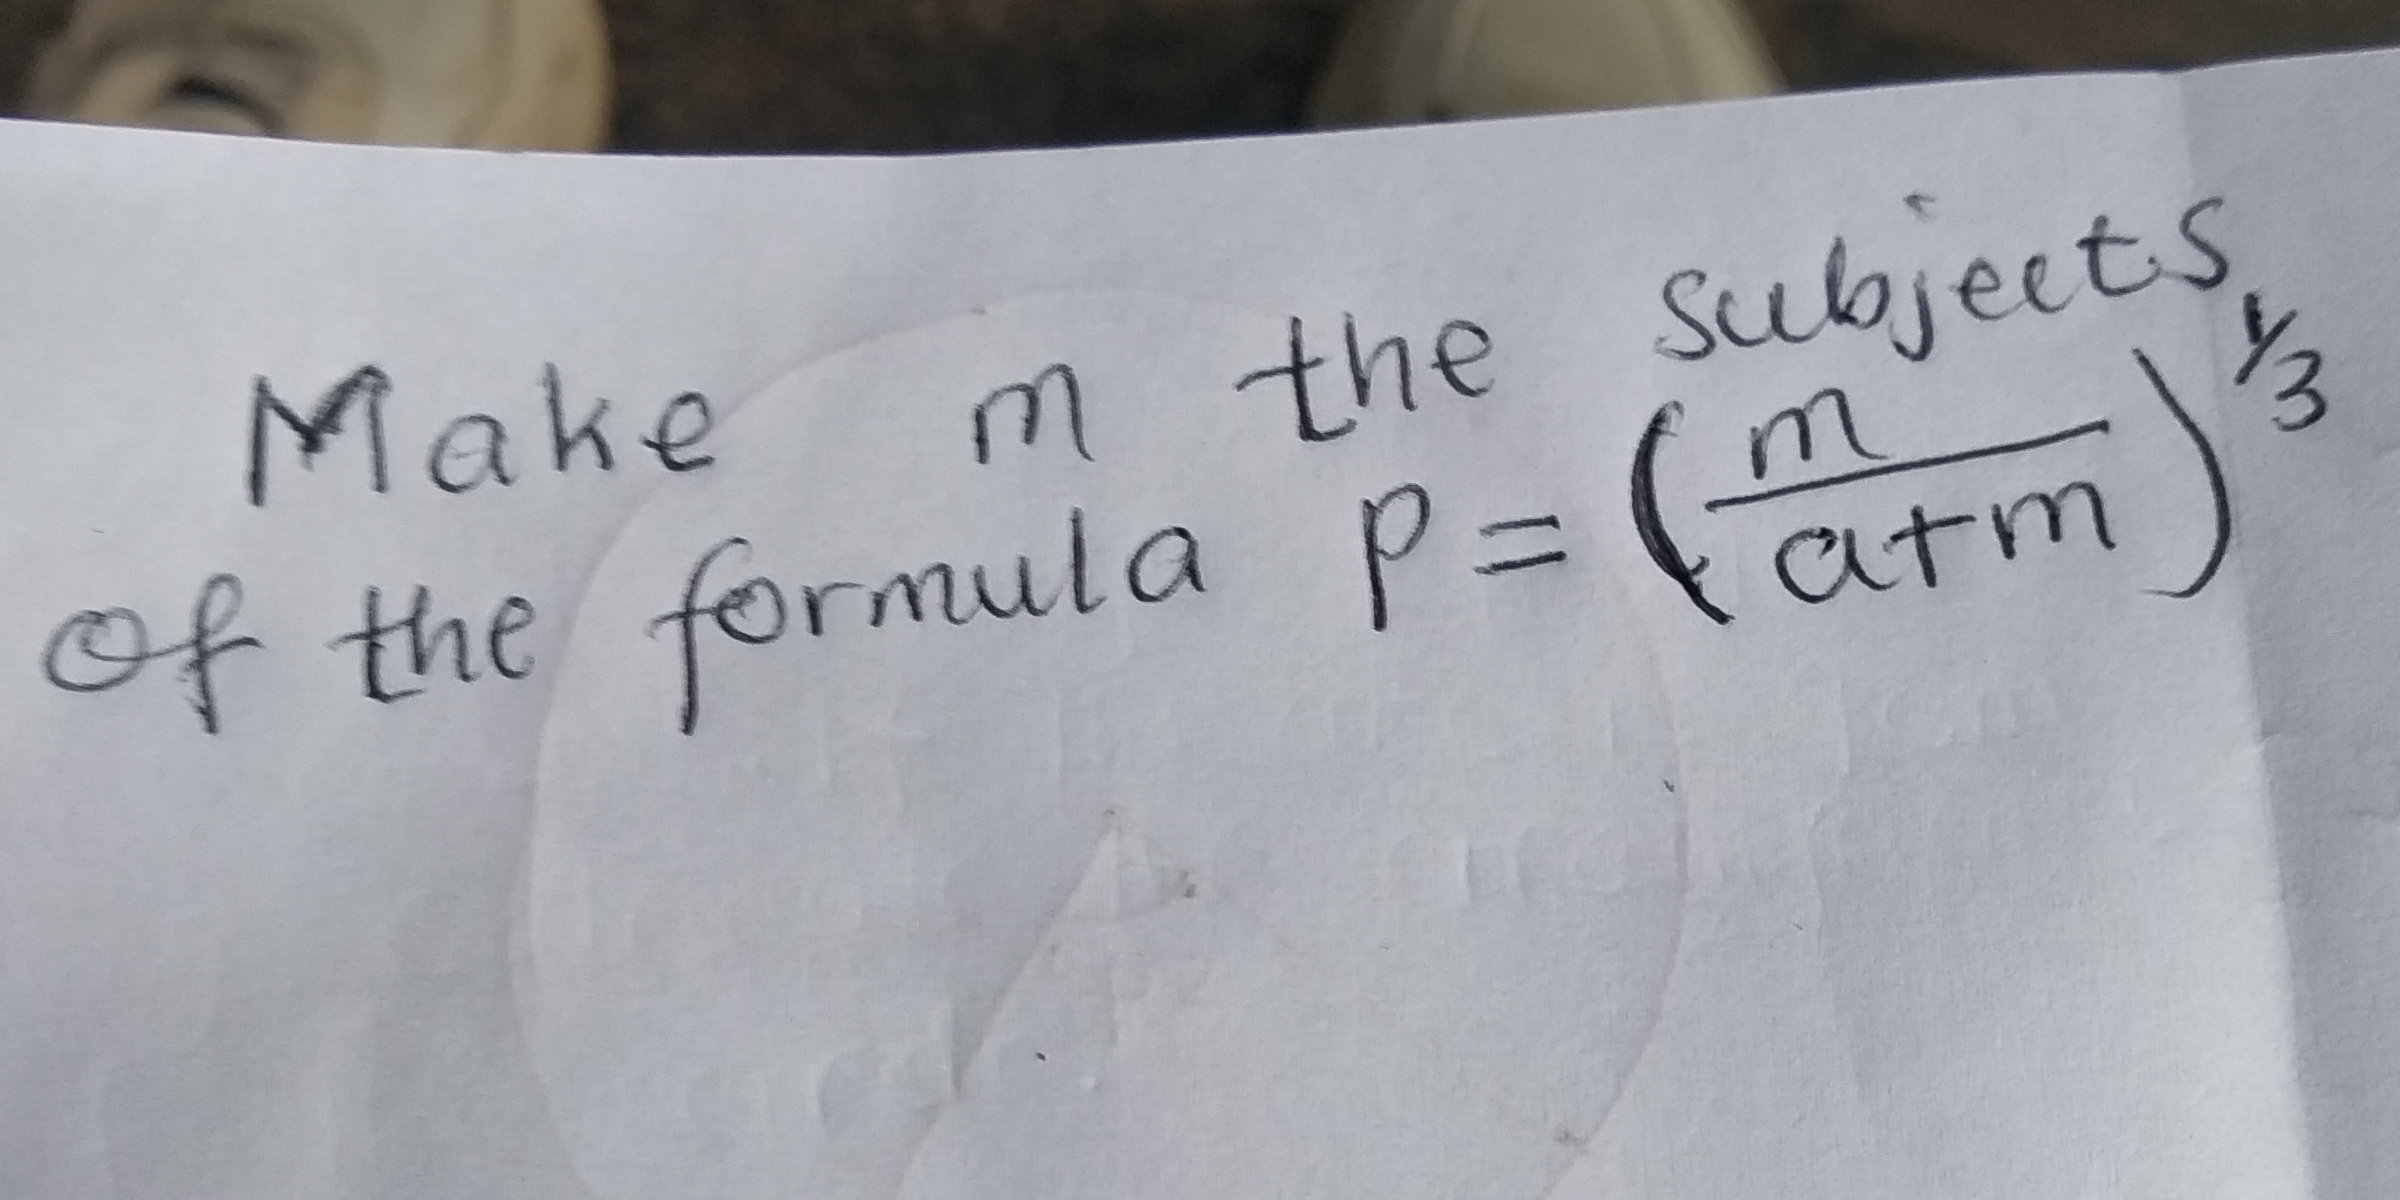 Make m the subjects
of the formula P = (m/a+m)^1/3